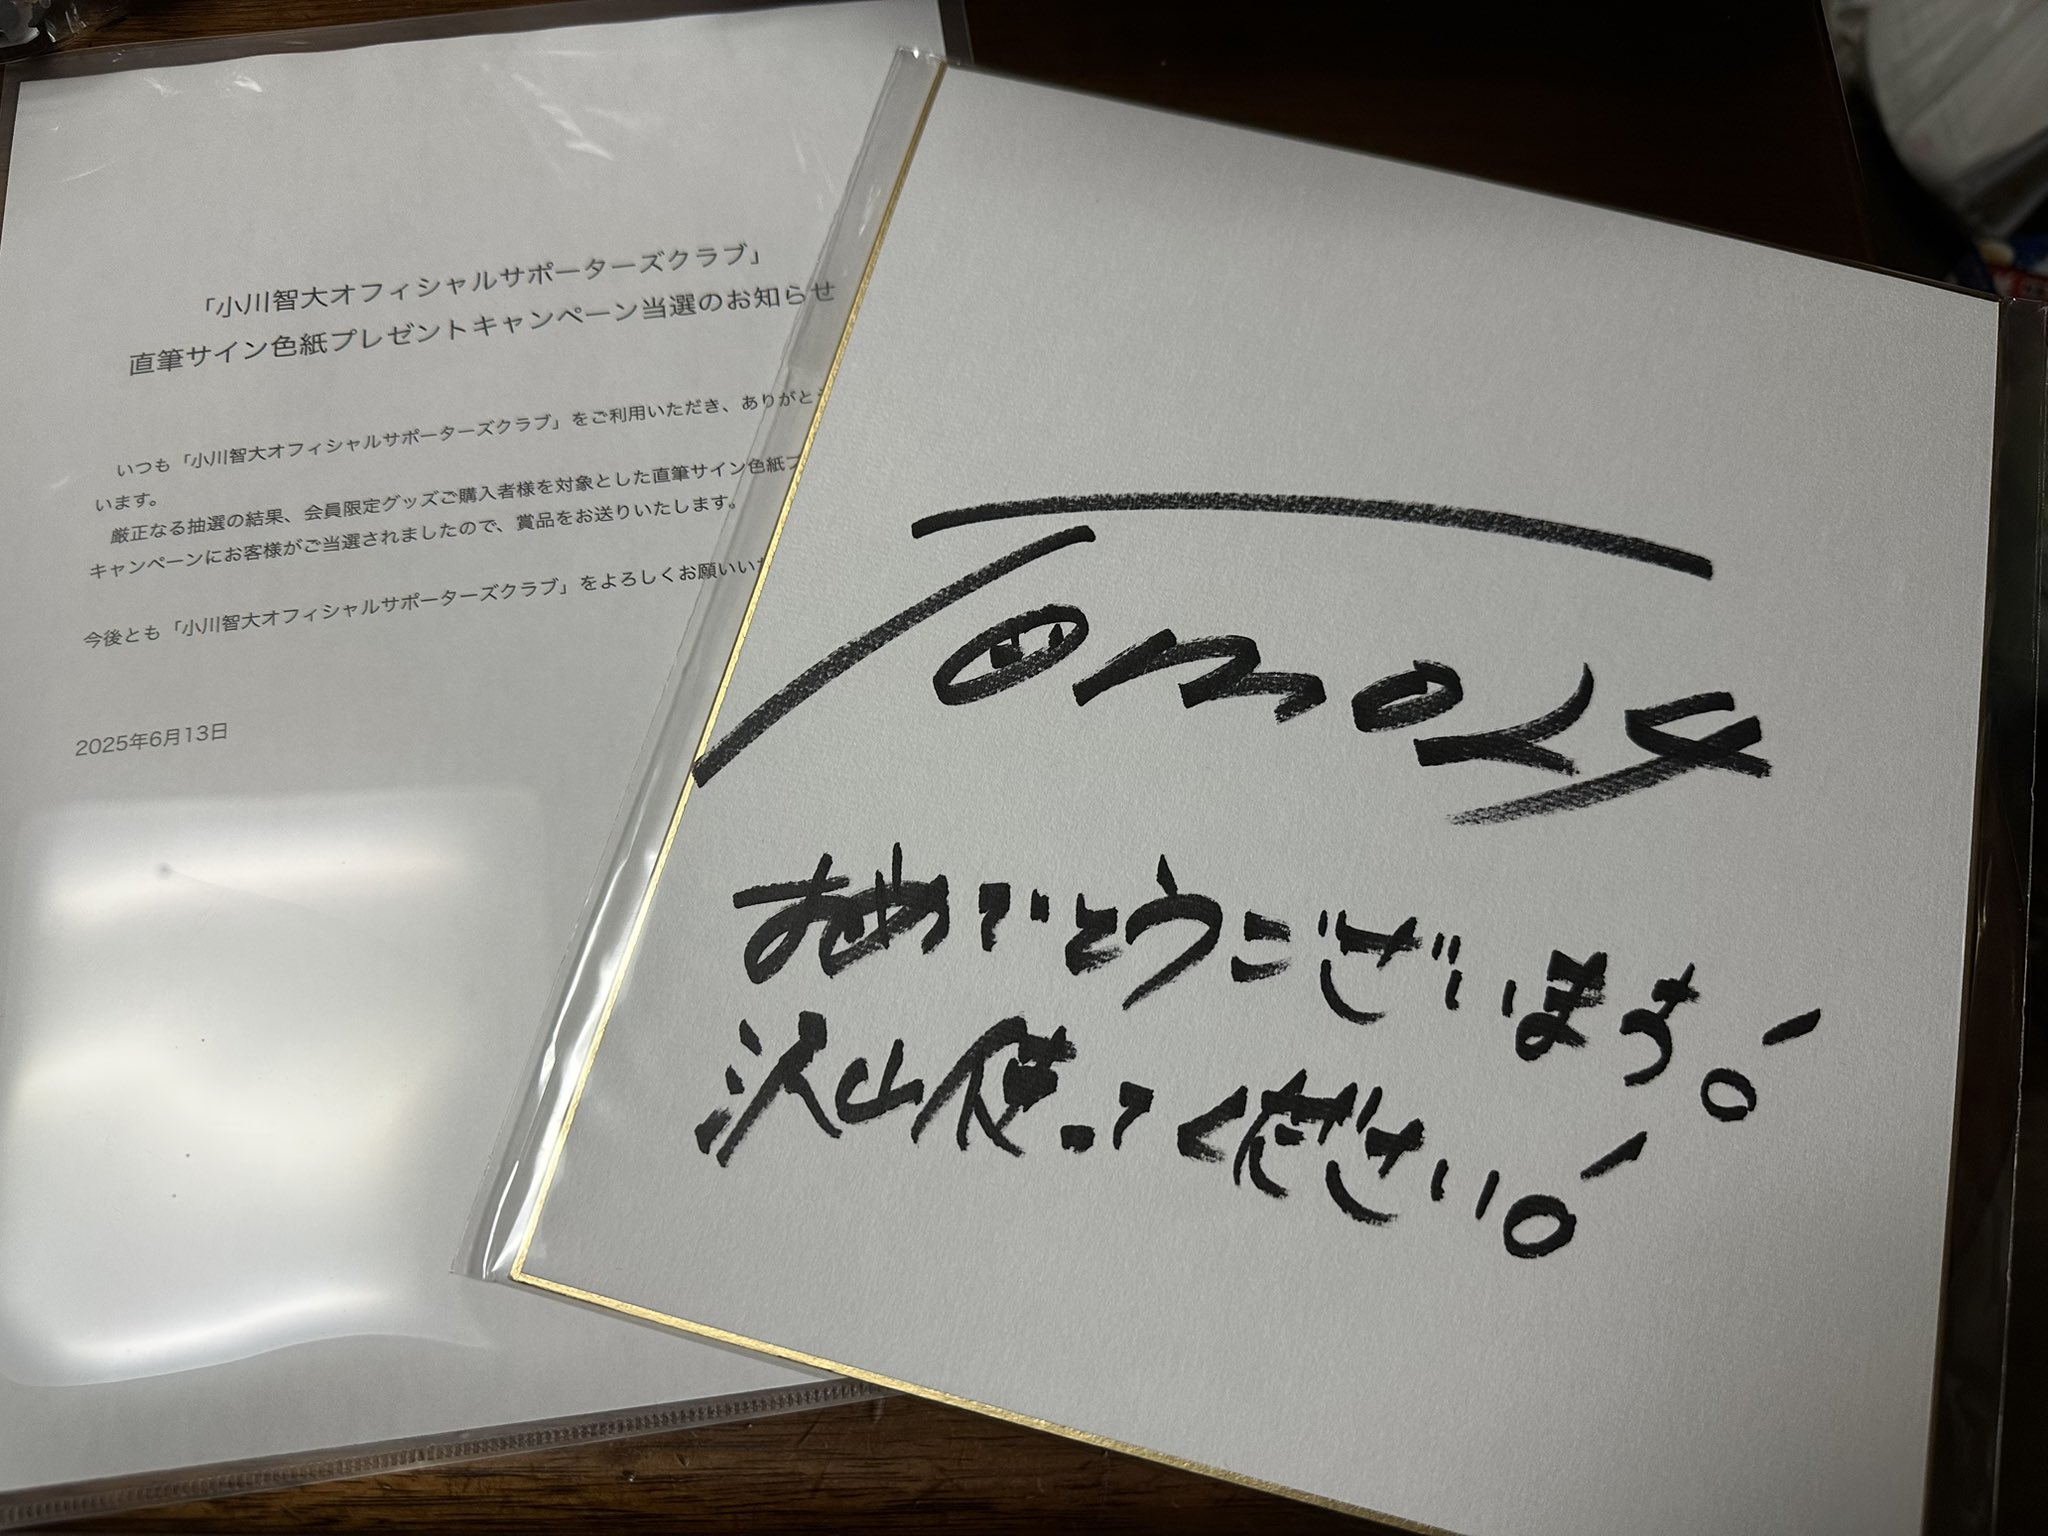 「小川智大オフィシャルサポーターズクラブ」
直筆サイン色紙プレゼントキャンペーン当選のお知らせ
いつも「小川智大オフィシャルサポーターズクラブ」をご利用いただき、ありがとう
います。
厳正なる抽選の結果、会員限定グッズご購入者様を対象とした直筆サイン色紙プ
キャンペーンにお客様がご当選されましたので、賞品をお送りいたします。
今後とも「小川智大オフィシャルサポーターズクラブ」をよろしくお願いいた
2025年6月13日
おめでとうございます!
沢山使ってください!